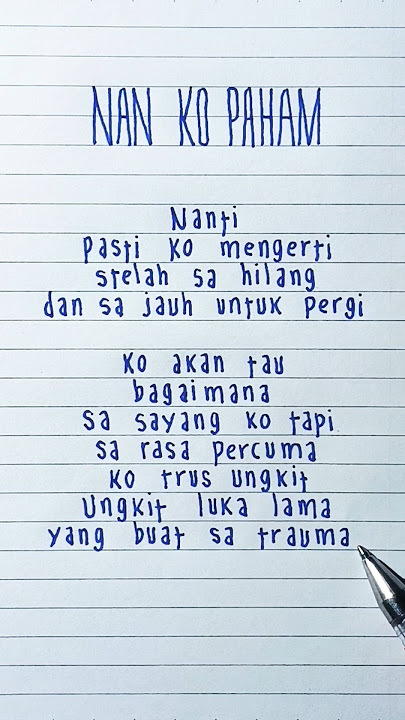 NAN KO PAHAM
Nanti
Pasti Ko mengerti
stelah sa hilang
dan sa jauh untuk pergi
Ko akan tau
bagaimana
sa sayang ko tapi
sa rasa percuma
Ko trus ungkit
Ungkit luka lama
yang buat sa trauma